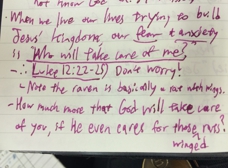 not know God
When we live our lives trying to build
Jesus' kingdom, our fear & anxiety
is "Who will take care of me?"
-∴ Luke 12:22-25) Don't worry!
- Note the raven is basically a rat with wings.
- How much more that God will take care
of you, if He even cares for those rats?
winged